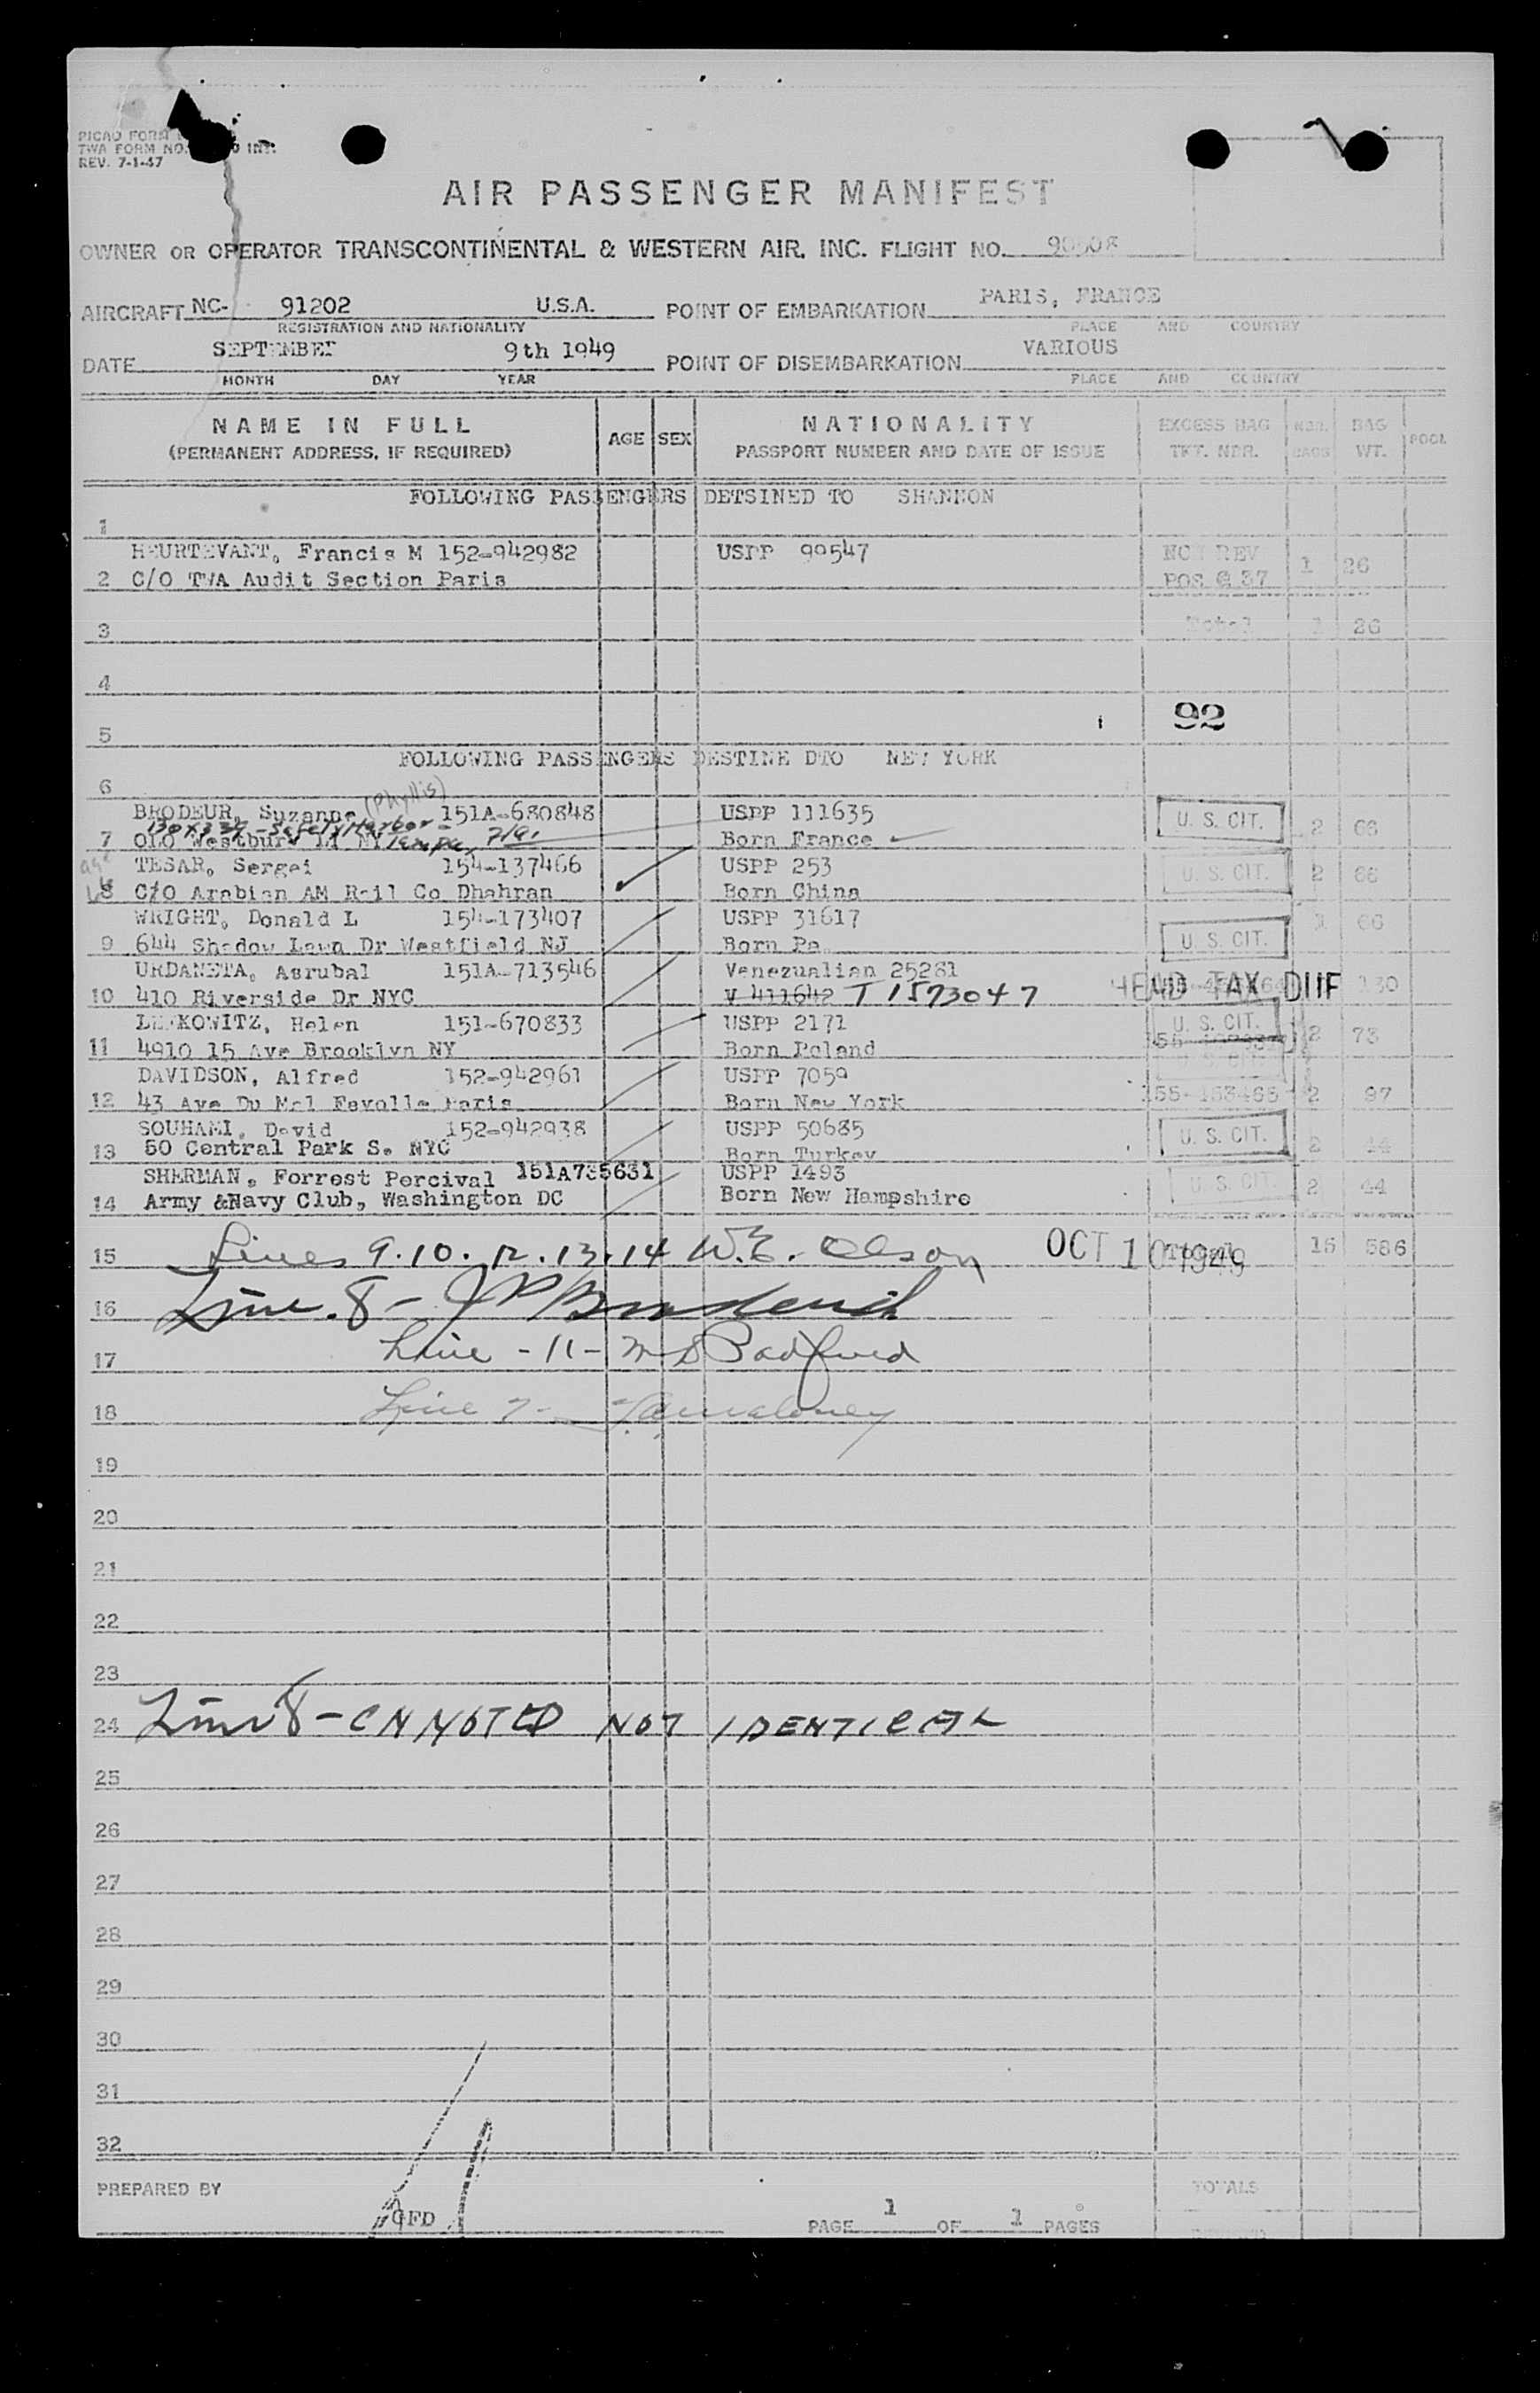 PICAO FORM
TWA FORM NO. INT.
REV. 7-1-47
AIR PASSENGER MANIFEST
OWNER OR OPERATOR TRANSCONTINENTAL & WESTERN AIR, INC. FLIGHT NO.
AIRCRAFT NC- 91202 U.S.A. POINT OF EMBARKATION PARIS, FRANCE
REGISTRATION AND NATIONALITY PLACE AND COUNTRY
DATE SEPTEMBER 9th 1949 POINT OF DISEMBARKATION VARIOUS
MONTH DAY YEAR PLACE AND COUNTRY
NAME IN FULL AGE SEX NATIONALITY EXCESS BAG NBR. BAG POOL
(PERMANENT ADDRESS, IF REQUIRED) PASSPORT NUMBER AND DATE OF ISSUE TKT. NBR. BAGS WT.
FOLLOWING PASSENGERS DETSINED TO SHANNON
1
HEURTEVANT, Francis M 152-942982 USPP 99547 NON REV 1 26
2 C/O TWA Audit Section Paris POS @ 37
3 Total 1 26
4
5 92
FOLLOWING PASSENGERS DESTINE DTO NEW YORK
6
BRODEUR, Suzanne (Phyllis) 151A-680848 USPP 111635 U. S. CIT. 2 66
Box 337 - Safety Harbor -
7 OLO Westbury LI NY Tampa, Fla. Born France
TESAR, Sergei 154-137466 USPP 253 U. S. CIT. 2 66
8 C/O Arabian AM Rail Co Dhahran Born China
WRIGHT, Donald L 154-173407 USPP 31617 U. S. CIT. 1 66
9 644 Shadow Lawn Dr Westfield NJ Born Pa.
URDANETA, Asrubal 151A-713546 Venezualian 25281 HEAD TAX DUE 130
10 410 Riverside Dr NYC V 411642 T 1573047
LEFKOWITZ, Helen 151-670833 USPP 2171 U. S. CIT. 2 73
11 4910 15 Ave Brooklyn NY Born Poland
DAVIDSON, Alfred 152-942961 USPP 7059 U. S. CIT.
12 43 Ave Du Mal Fayolle Paris Born New York 155-153465 2 97
SOUHAMI, David 152-942938 USPP 50685 U. S. CIT. 2 44
13 50 Central Park S. NYC Born Turkey
SHERMAN, Forrest Percival 151A735631 USPP 1493 U. S. CIT. 2 44
14 Army &Navy Club, Washington DC Born New Hampshire
15 Lines 9.10.12.13.14 W.E. Olson OCT 10 1949 Total 15 586
16 Line 8 - JP
17 Line - 11 - M D Padfured
18 Line 7 - Maloney
19
20
21
22
23
24 Line 8 - CN NOTED NOT IDENTICAL
25
26
27
28
29
30
31
32
PREPARED BY TOTALS
GFD PAGE 1 OF 1 PAGES